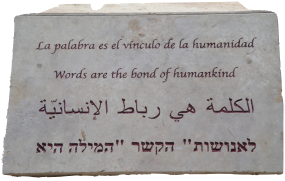 La palabra es el vínculo de la humanidad
Words are the bond of humankind
الكلمة هي رباط الإنسانيّة
היא המילה" הקשר "לאנושות